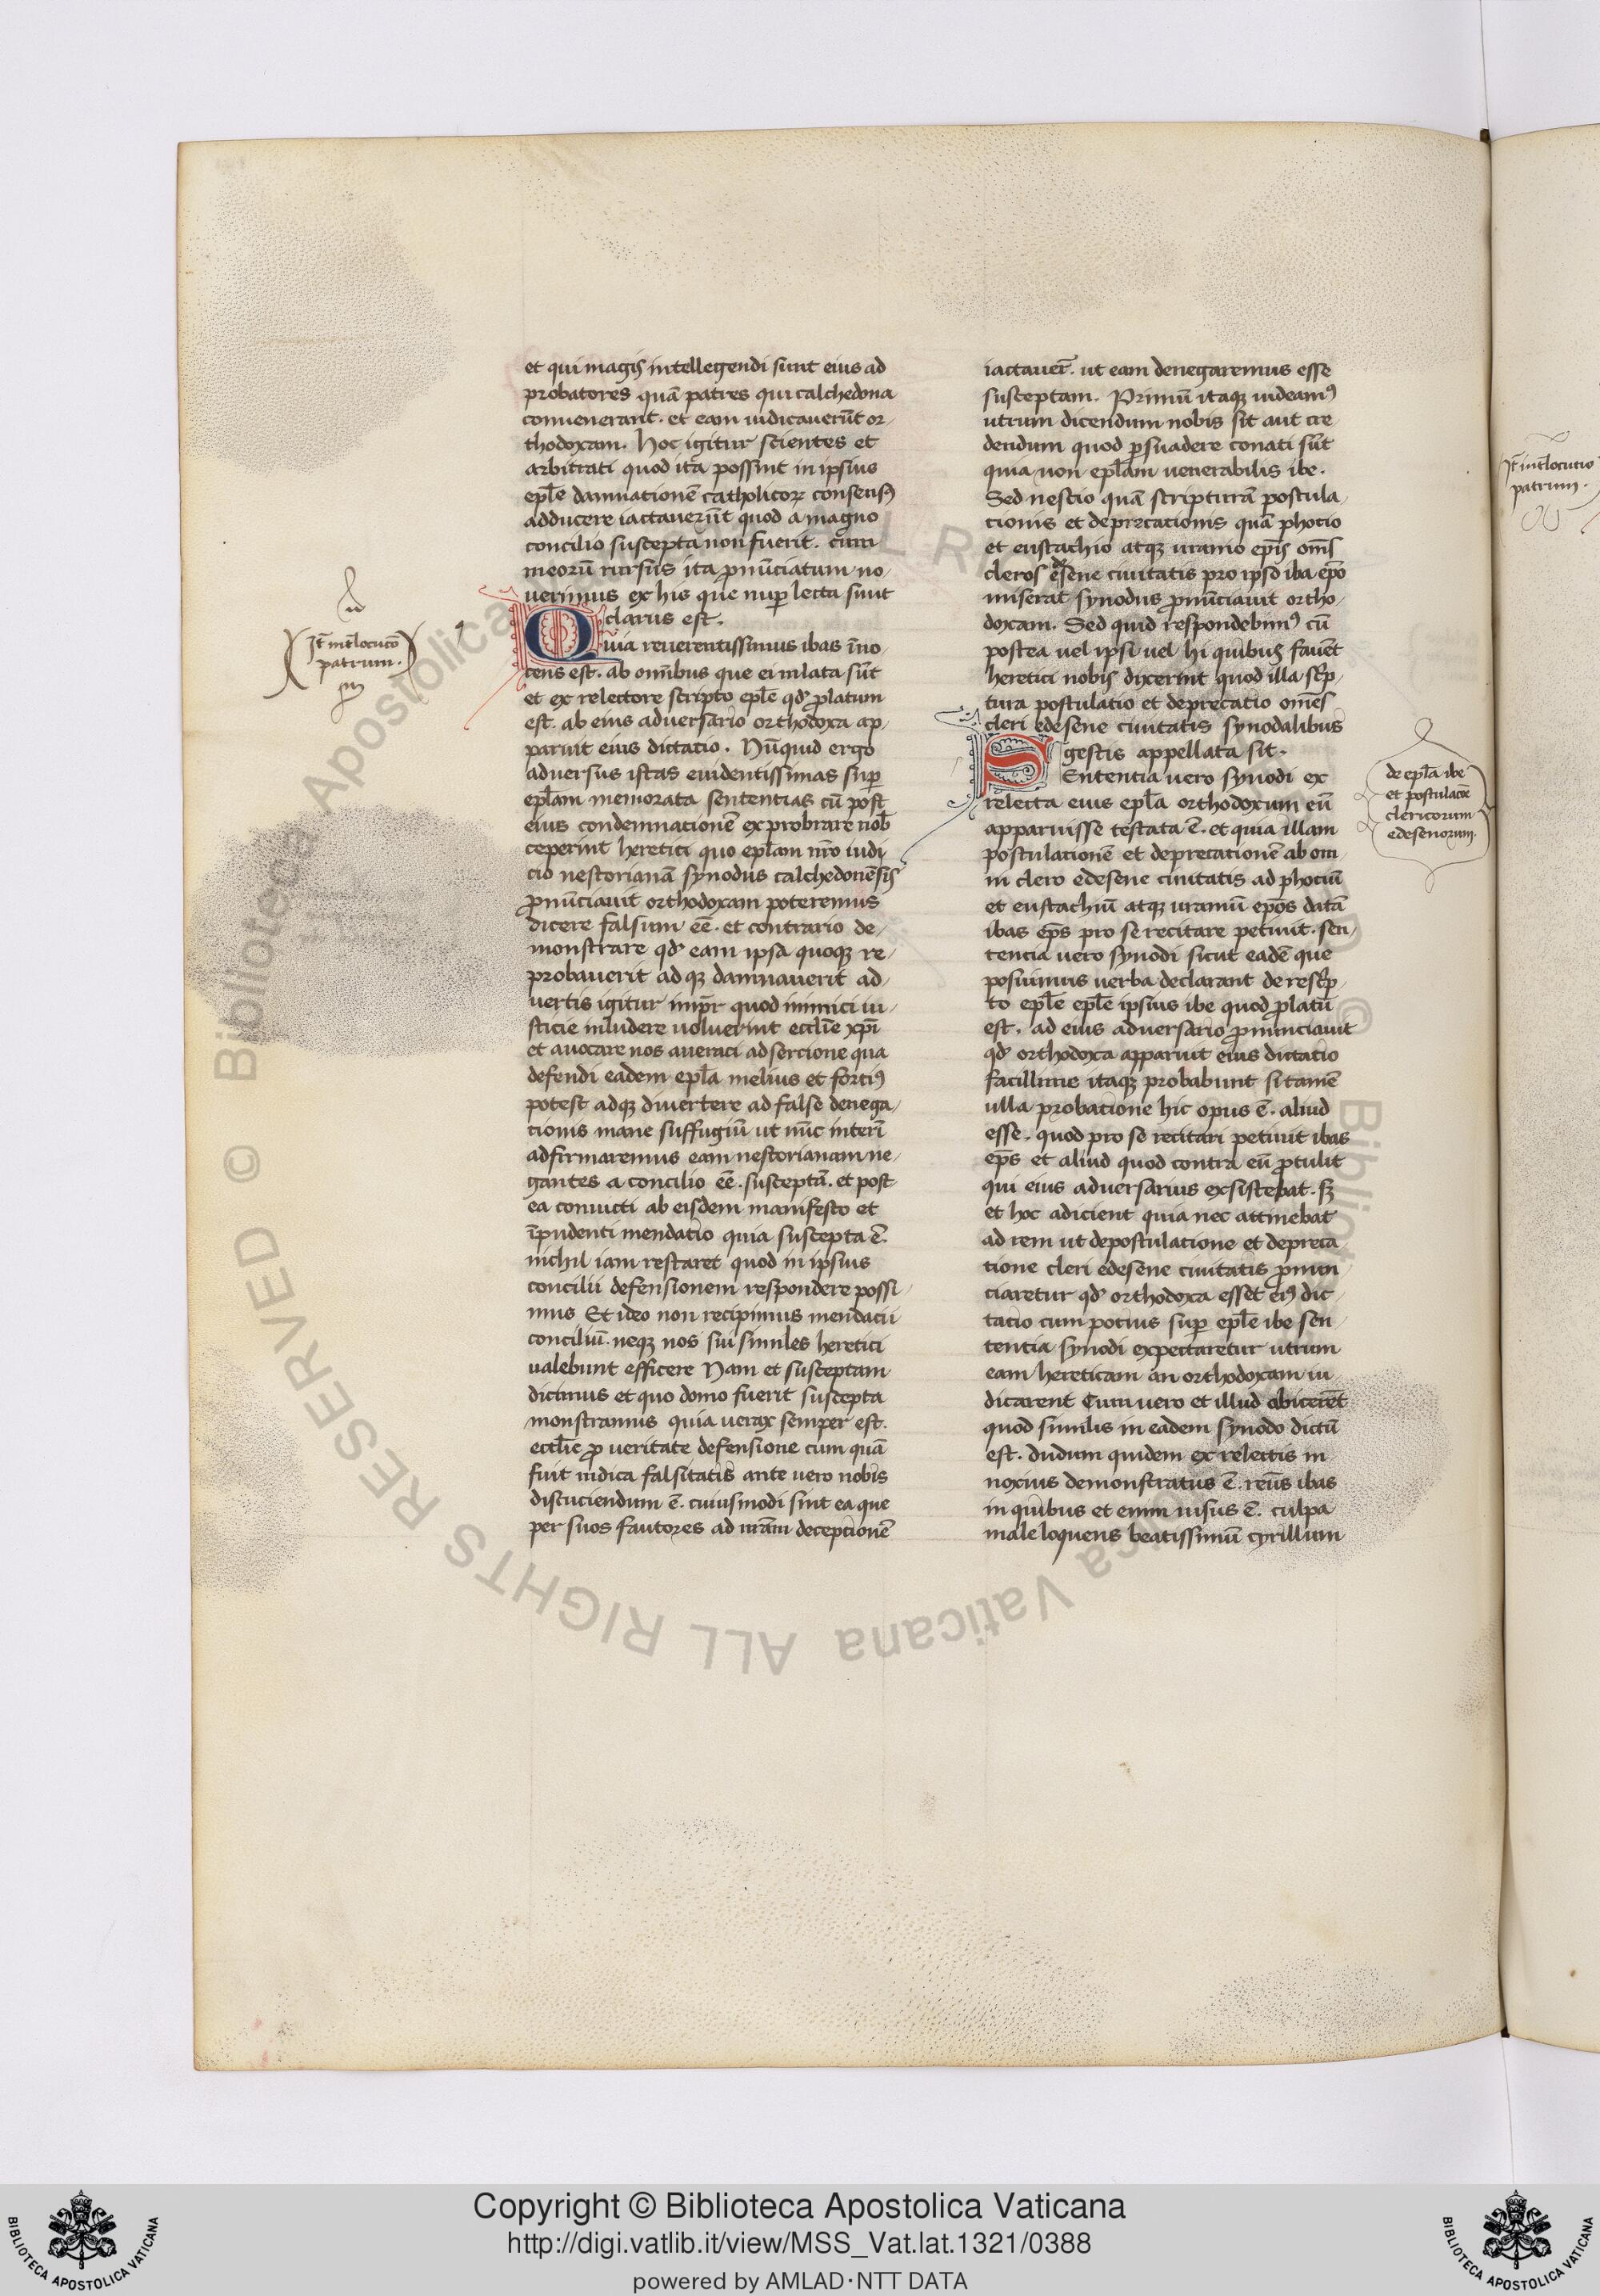 et qui magis intellegendi sunt eius ad
probatores quā patres qui calchedona
convenerant. et eam iudicauerūt or-
thodoxam. Hoc igitur scientes et
arbitrati quod ita possint in ipsius
epl̄e damnationē catholicoꝝ consensꝰ
adducere iactauerūt quod a magno
concilio suscepta non fuerit. cum
meorū rursus ita ꝓnūciatum no-
uerimus ex his que nuꝑ lecta sunt
clarus est.
Quia reuerentissimus ibas īno-
cens est. ab om̄ibus que ei inlata sūt
et ex relectore scripto epl̄e qđ ꝓlatum
est. ab eius aduersario orthodoxa ap-
paruit eius dictatio. Nūquid ergo
aduersus istas euidentissimas suꝑ
epl̄am memorata sententias cū post
eius condemnationē exprobrare nob̄
ceperint heretici quo epl̄am nr̄o iudi
cio nestorianā synodus calchedonēsis
ꝓnūciauit orthodoxam poteremus
dicere falsum eē. et contrario de-
monstrare qđ eam ipsa quoqꝫ re-
probauerit adqꝫ damnauerit ad-
uertis igitur imꝑr quod inimici iu-
sticie inludere uoluerint eccl̄ie xp̄i
et auocare nos aueraci adsercione qua
defendi eadem epl̄a melius et fortiꝰ
potest adqꝫ diuertere ad false denega-
tionis mane suffugiū ut nūc interī
adfirmaremus eam nestorianam ne-
gantes a concilio eē. susceptā. et post
ea conuicti ab eisdem manifesto et
īpudenti mendatio quia suscepta ē.
nichil iam restaret quod in ipsius
concilii defensionem respondere possi-
mus Et ideo non recipimus mendacii
conciliū. neqꝫ nos sui similes heretici
ualebunt efficere Nam et susceptam
dicimus et quo domo fuerit suscepta
monstramus quia uerax semper est.
eccl̄ie ꝓ ueritate defensione cum quā
fuit iudica falsitatis ante uero nobis
discuciendum ē. cuiusmodi sint ea que
per suos fautores ad nr̄am deceptionē
iactauer̄. ut eam denegaremus esse
susceptam. Primū itaqꝫ uideamꝰ
utrum dicendum nobis sit aut cre
dendum quod ꝑsuadere conati sūt
quia non epl̄am uenerabilis ibe.
Sed nescio quā scripturā postula-
tionis et deprecationis quā photio
et eustachio atqꝫ uranio ep̄is om̄s
cleros esene ciuitatis pro ipso iba ep̄o
miserat synodus ꝓnūciauit ortho-
doxam. Sed quid respondebimꝰ cū
postea uel ipsi uel hi quibus fauēt
heretici nobis dixerint quod illa sc̄ꝑ-
tura postulatio et deprecatio om̄es
cleri edesene ciuitatis synodalibus
gestis appellata sit.
Sententia uero synodi ex
relecta eius epl̄a orthodoxum eū
apparuisse testata ē. et quia illam
postulationē et deprecationē ab om
ni clero edesene ciuitatis ad photiū
et eustachiū atqꝫ uraniū ep̄os datā
ibas ep̄s pro se recitare petiuit. sen-
tencia uero synodi sicut eadē que
posuimus uerba declarant de resc̄ꝑ-
to epl̄e epl̄e ipsius ibe quod ꝓlatū
est. ad eius aduersario ꝓnunciauit
qđ orthodoxa apparuit eius dictatio
facillime itaqꝫ probabunt si tamē
ulla probatione hic opus ē. aliud
esse. quod pro se recitari petiuit ibas
ep̄s et aliud quod contra eū ꝓtulit
qui eius aduersarius exsistebat. sꝫ
et hoc adicient quia nec attinebat
ad rem ut depostulatione et depreca-
tione cleri edesene ciuitatis ꝓnun
ciaretur qđ orthodoxa esset eiꝰ dic-
tatio cum potius suꝑ epl̄e ibe sen-
tentia synodi expectaretur utrum
eam hereticam an orthodoxam iu
dicarent Cum uero et illud abicerēt
quod similis in eadem synodo dictū
est. dudum quidem ex relectis in
noxius demonstratus ē. reūs ibas
in quibus et enim uisus ē. culpa
male loquens beatissimū cyrillum
It̄ int̄locutō
patrum.
de epl̄a ibe
et postulacōe
clericorum
edesenorum.
It̄ int̄locutio
patrum.
© Biblioteca Apostolica Vaticana ALL RIGHTS RESERVED
Copyright © Biblioteca Apostolica Vaticana
http://digi.vatlib.it/view/MSS_Vat.lat.1321/0388
powered by AMLAD·NTT DATA
BIBLIOTECA APOSTOLICA VATICANA
BIBLIOTECA APOSTOLICA VATICANA